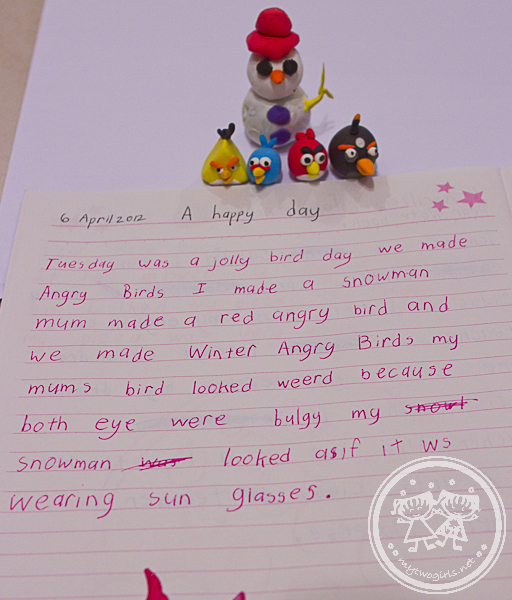 6 April 2012 A happy day
Tuesday was a jolly bird day we made
Angry Birds I made a snowman
mum made a red angry bird and
we made Winter Angry Birds my
mums bird looked weerd because
both eye were bulgy my snowl
snowman was looked asif it ws
wearing sun glasses.
mytwogirls.net